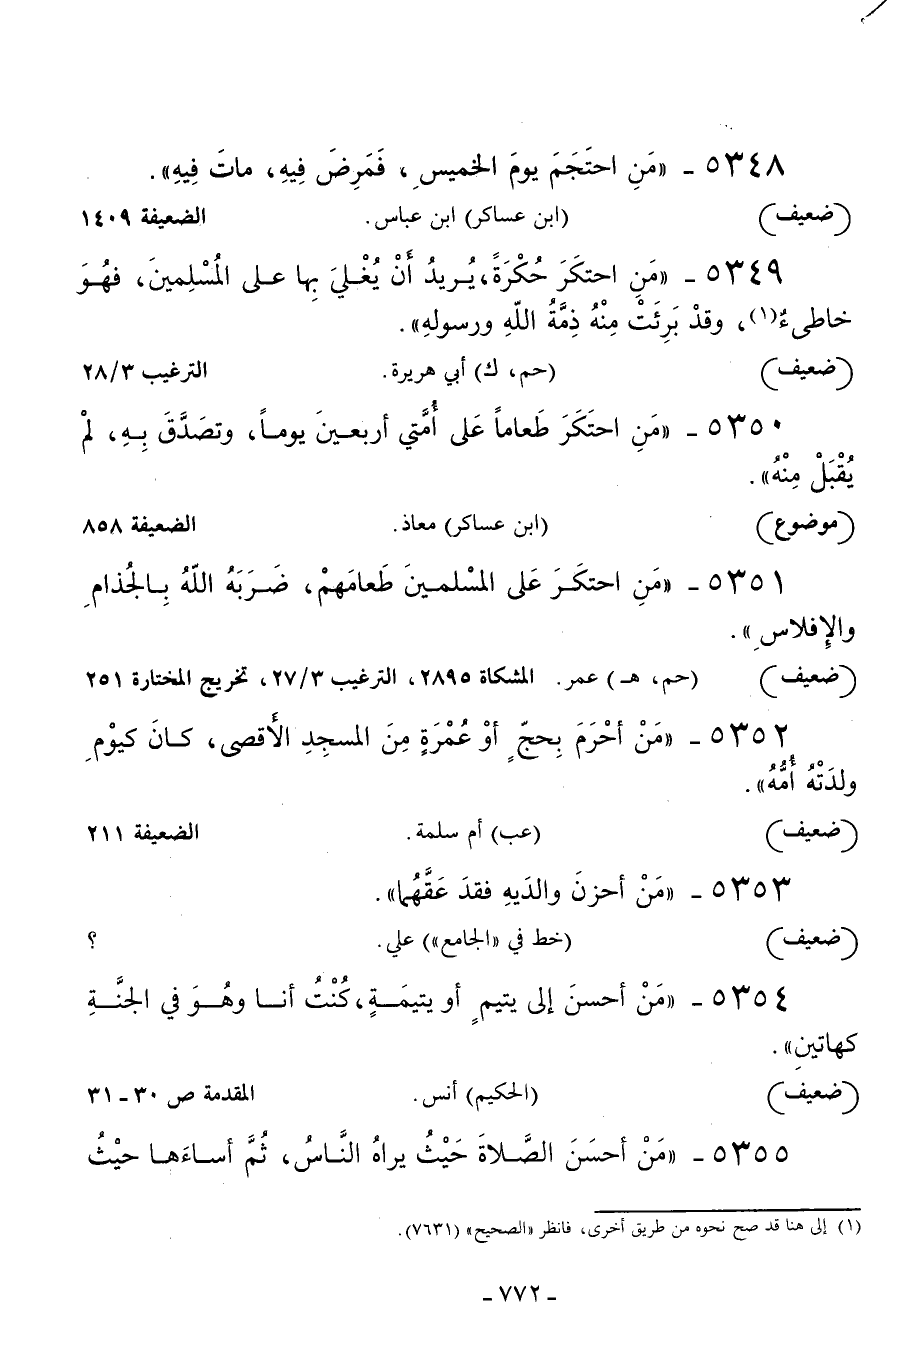 ٥٣٤٨ ـ «مَنِ احتَجَمَ يومَ الخميسِ ، فَمَرِضَ فِيهِ، ماتَ فِيهِ» .
(ضعيف) (ابن عساكر) ابن عباس. الضعيفة ١٤٠٩
٥٣٤٩ ـ «مَنِ احتكَرَ حُكْرَةً، يُريدُ أَنْ يُغْليَ بِها على المُسْلِمينَ، فهُوَ
خاطىءٌ(١)، وقدْ بَرِئَتْ مِنْهُ ذِمَّةُ اللّهِ ورسولهِ» .
(ضعيف) (حم، ك) أبي هريرة. الترغيب ٢٨/٣
٥٣٥٠ ـ «مَنِ احتَكَرَ طَعاماً عَلى أُمَّتي أربعينَ يوماً، وتصَدَّقَ بِهِ، لَمْ
يُقْبَلْ مِنْهُ» .
(موضوع) (ابن عساكر) معاذ. الضعيفة ٨٥٨
٥٣٥١ ـ «مَنِ احتكَرَ عَلى المسْلمينَ طَعامَهمْ، ضَرَبَهُ اللّهُ بِالجُذامِ
والإِفلاسِ» .
(ضعيف) (حم، هـ) عمر. المشكاة ٢٨٩٥، الترغيب ٢٧/٣، تخريج المختارة ٢٥١
٥٣٥٢ ـ «مَنْ أحْرَمَ بِحجٍّ أوْ عُمْرَةٍ مِنَ المسجِدِ الأَقصى، كانَ كيوْمِ
ولدَتْهُ أُمُّهُ» .
(ضعيف) (عب) أم سلمة. الضعيفة ٢١١
٥٣٥٣ ـ «مَنْ أحزنَ والدَيهِ فقدَ عَقَّهُما» .
(ضعيف) (خط في «الجامع») علي. ؟
٥٣٥٤ ـ «مَنْ أحسنَ إلى يتيمٍ أو يتيمَةٍ، كُنْتُ أنا وهُوَ في الجنَّةِ
كهاتينِ» .
(ضعيف) (الحكيم) أنس. المقدمة ص ٣٠ ـ ٣١
٥٣٥٥ ـ «مَنْ أحسَنَ الصَّلاةَ حَيْثُ يراهُ النَّاسُ، ثُمَّ أساءَها حيْثُ
(١) إلى هنا قد صح نحوه من طريق أخرى، فانظر «الصحيح» (٧٦٣١).
ـ ٧٧٢ ـ